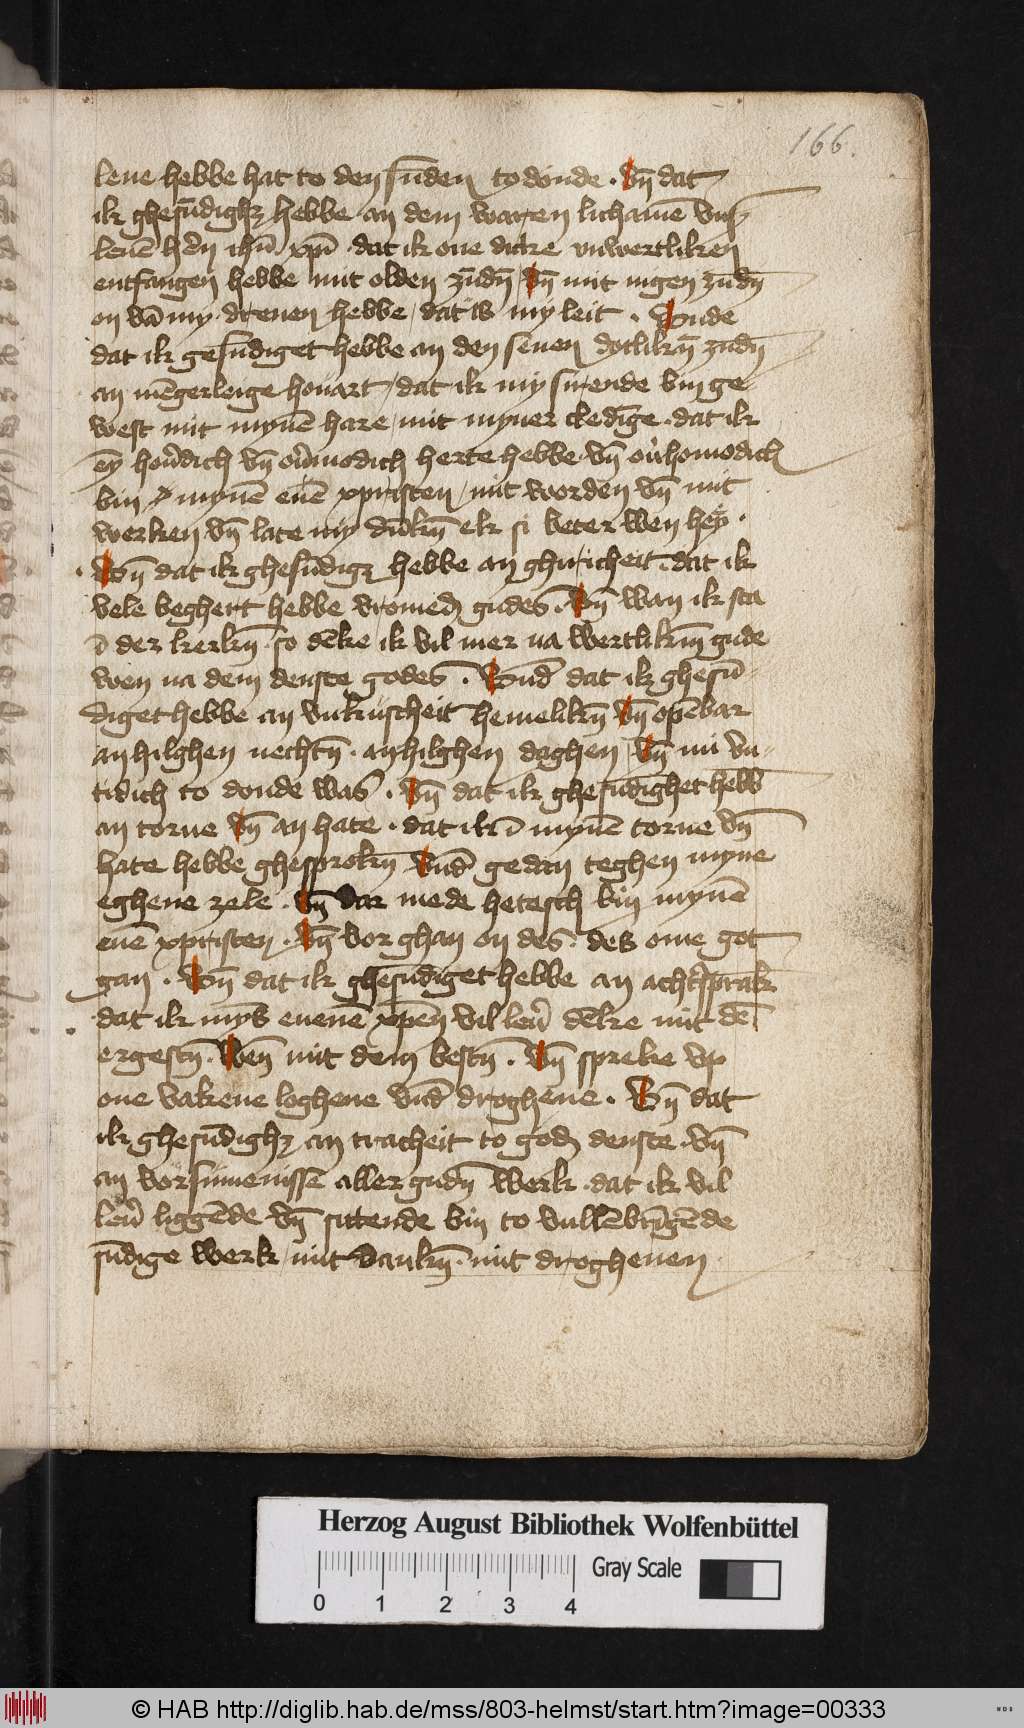 166.
leue hebbe hat to den sūden to donde · Vn̄ dat
ik ghesūdighꝫ hebbe an dem waren lichamē vnſ
leuē h'n ihū xp̄i · dat ik one dicke vnwertliken
entfangen hebbe mit olden zūdn̄ / Vn̄ mit nigen zūdn̄
on vā my dreuen hebbe / dat is my leit · Vnde
dat ik gesūdiget hebbe an den seuen dotlikn̄ zudn̄
an mēgerleige houart / dat ik my sirende bin ge
west mit mynē hare / mit myner cledīge · dat ik
ey hou'dich vn̄ ou'modich herte hebbe · vn̄ ou'homodich
bin mynē euē xp̄risten / mit worden vn̄ mit
werken vn̄ late my dūkn̄ ek si beter wen hey ·
Vn̄ dat ik ghesūdigꝫ hebbe an ghiricheit · dat ik
vele beghert hebbe vromedꝭ gudes · Vn̄ wan ik sta
ī der kerkn̄ · so dēke ik vil mer na wertlikm̄ gude
wen na dem denste godes · Vnd̄ dat ik ghesū-
diget hebbe an vnkuscheit hemelikn̄ Vn̄ opēbar
an hilghen nechtn̄ · an hilghen daghen / Vn̄ mi vn-
tidich to donde was · Vn̄ dat ik ghesudighet hebb
an torne Vn̄ an hate · dat ik ī mynē torne Vn̄
hate hebbe ghesprokn̄ Vnd̄ gedan teghen myne
eghene zele · Vn̄ dar mede hetesch bin mynē
euē xp̄risten · Vn̄ vor ghan on des · des ome got
gan · Vn̄ dat ik ghesudiget hebbe an acht'sprake
dat ik mȳs euenē xp̄en vil leu' dēke mit dē
ergestn̄ · Wen̄ mit dem bestn̄ · Vn̄ spreke vp
one vakene loghene vnd̄ droghene · Vn̄ dat
ik ghesudighꝫ an tracheit to godꝭ denste · vn̄
an vorsumenisse aller gudn̄ werk · dat ik vil
leu' liggēde vn̄ sittende bin to vullēbrīgēde
sūdige werk / mit dankn̄ · mit droghenen
Herzog August Bibliothek Wolfenbüttel
0 1 2 3 4
Gray Scale
© HAB http://diglib.hab.de/mss/803-helmst/start.htm?image=00333